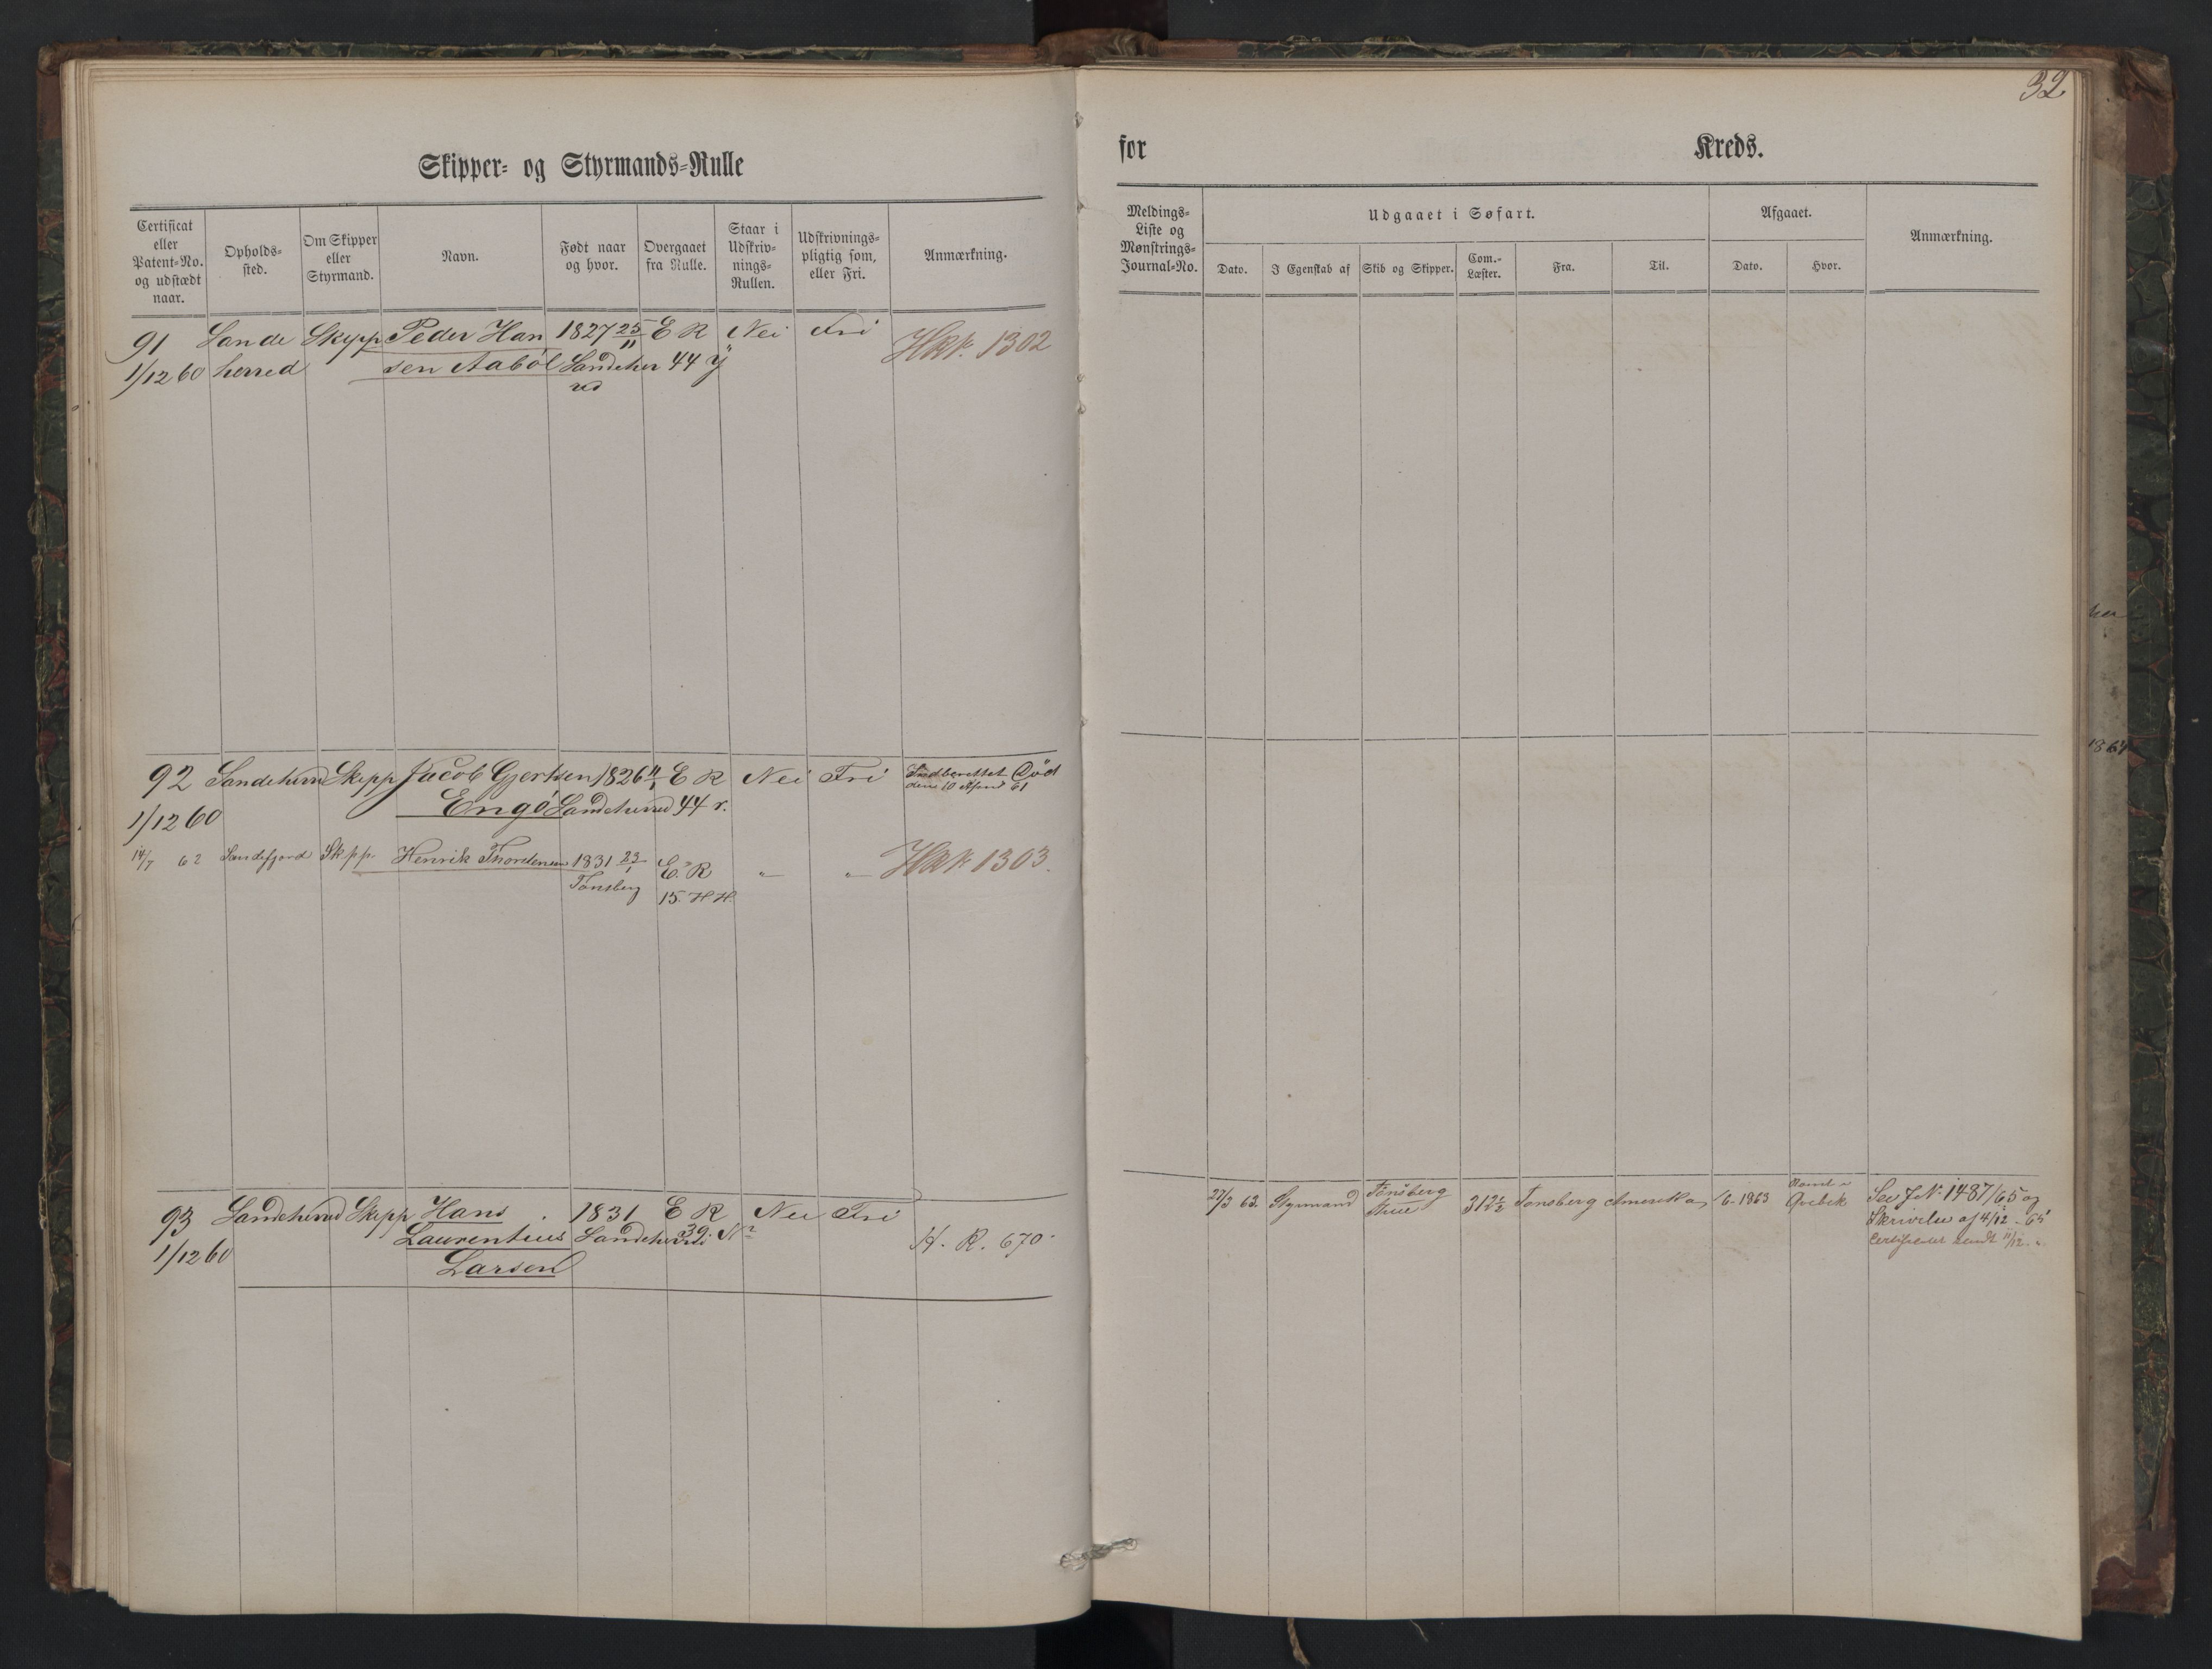 32
Skipper- og Styrmands-Rulle
for Kreds.
Certificat eller Patent-No. og udstædt naar.
Opholds-sted.
Om Skipper eller Styrmand.
Navn.
Født naar og hvor.
Overgaaet fra Rulle.
Staar i Udskriv-nings-Rullen.
Udskrivnings-pligtig som, eller Fri.
Anmærkning.
Meldings-Liste og Mønstrings-Journal-No.
Udgaaet i Søfart.
Dato.
I Egenskab af
Skib og Skipper.
Com.-Læster.
Fra.
Til.
Afgaaet.
Dato.
Hvor.
Anmærkning.
91 Sande Skipp Peder Han 1827 25/11 E R Nei Fri Hkk. 1302
1/12 60 herred sen Aaböl Sandeher 44 ÿ
red
92 Sandeherred Skipp Jacob Gjertsen 1826 11/1 E R Nei Fri Indberettet Död
dene 10 April 61
1/12 60 Engö Sandeherred 44 r.
14/7 62 Sandefjord Skpp. Henrik Thordensen 1831 23/1 E. R " " Hkk 1303.
Tønsberg 15. H H.
93 Sandeherred Skipp Hans 1831 E R Nei Fri
1/12 60 Laurentius Sandeherred 39. H. R. 670.
Larsen
27/3 62. Styrmand Tønsberg 31 1/2 Tønsberg Amerika /6-1863 Qvebek
See J.N. 1487/65 og
Skrivelse af 4/12 - 65
Certificatet sendt 11/12 "
1864